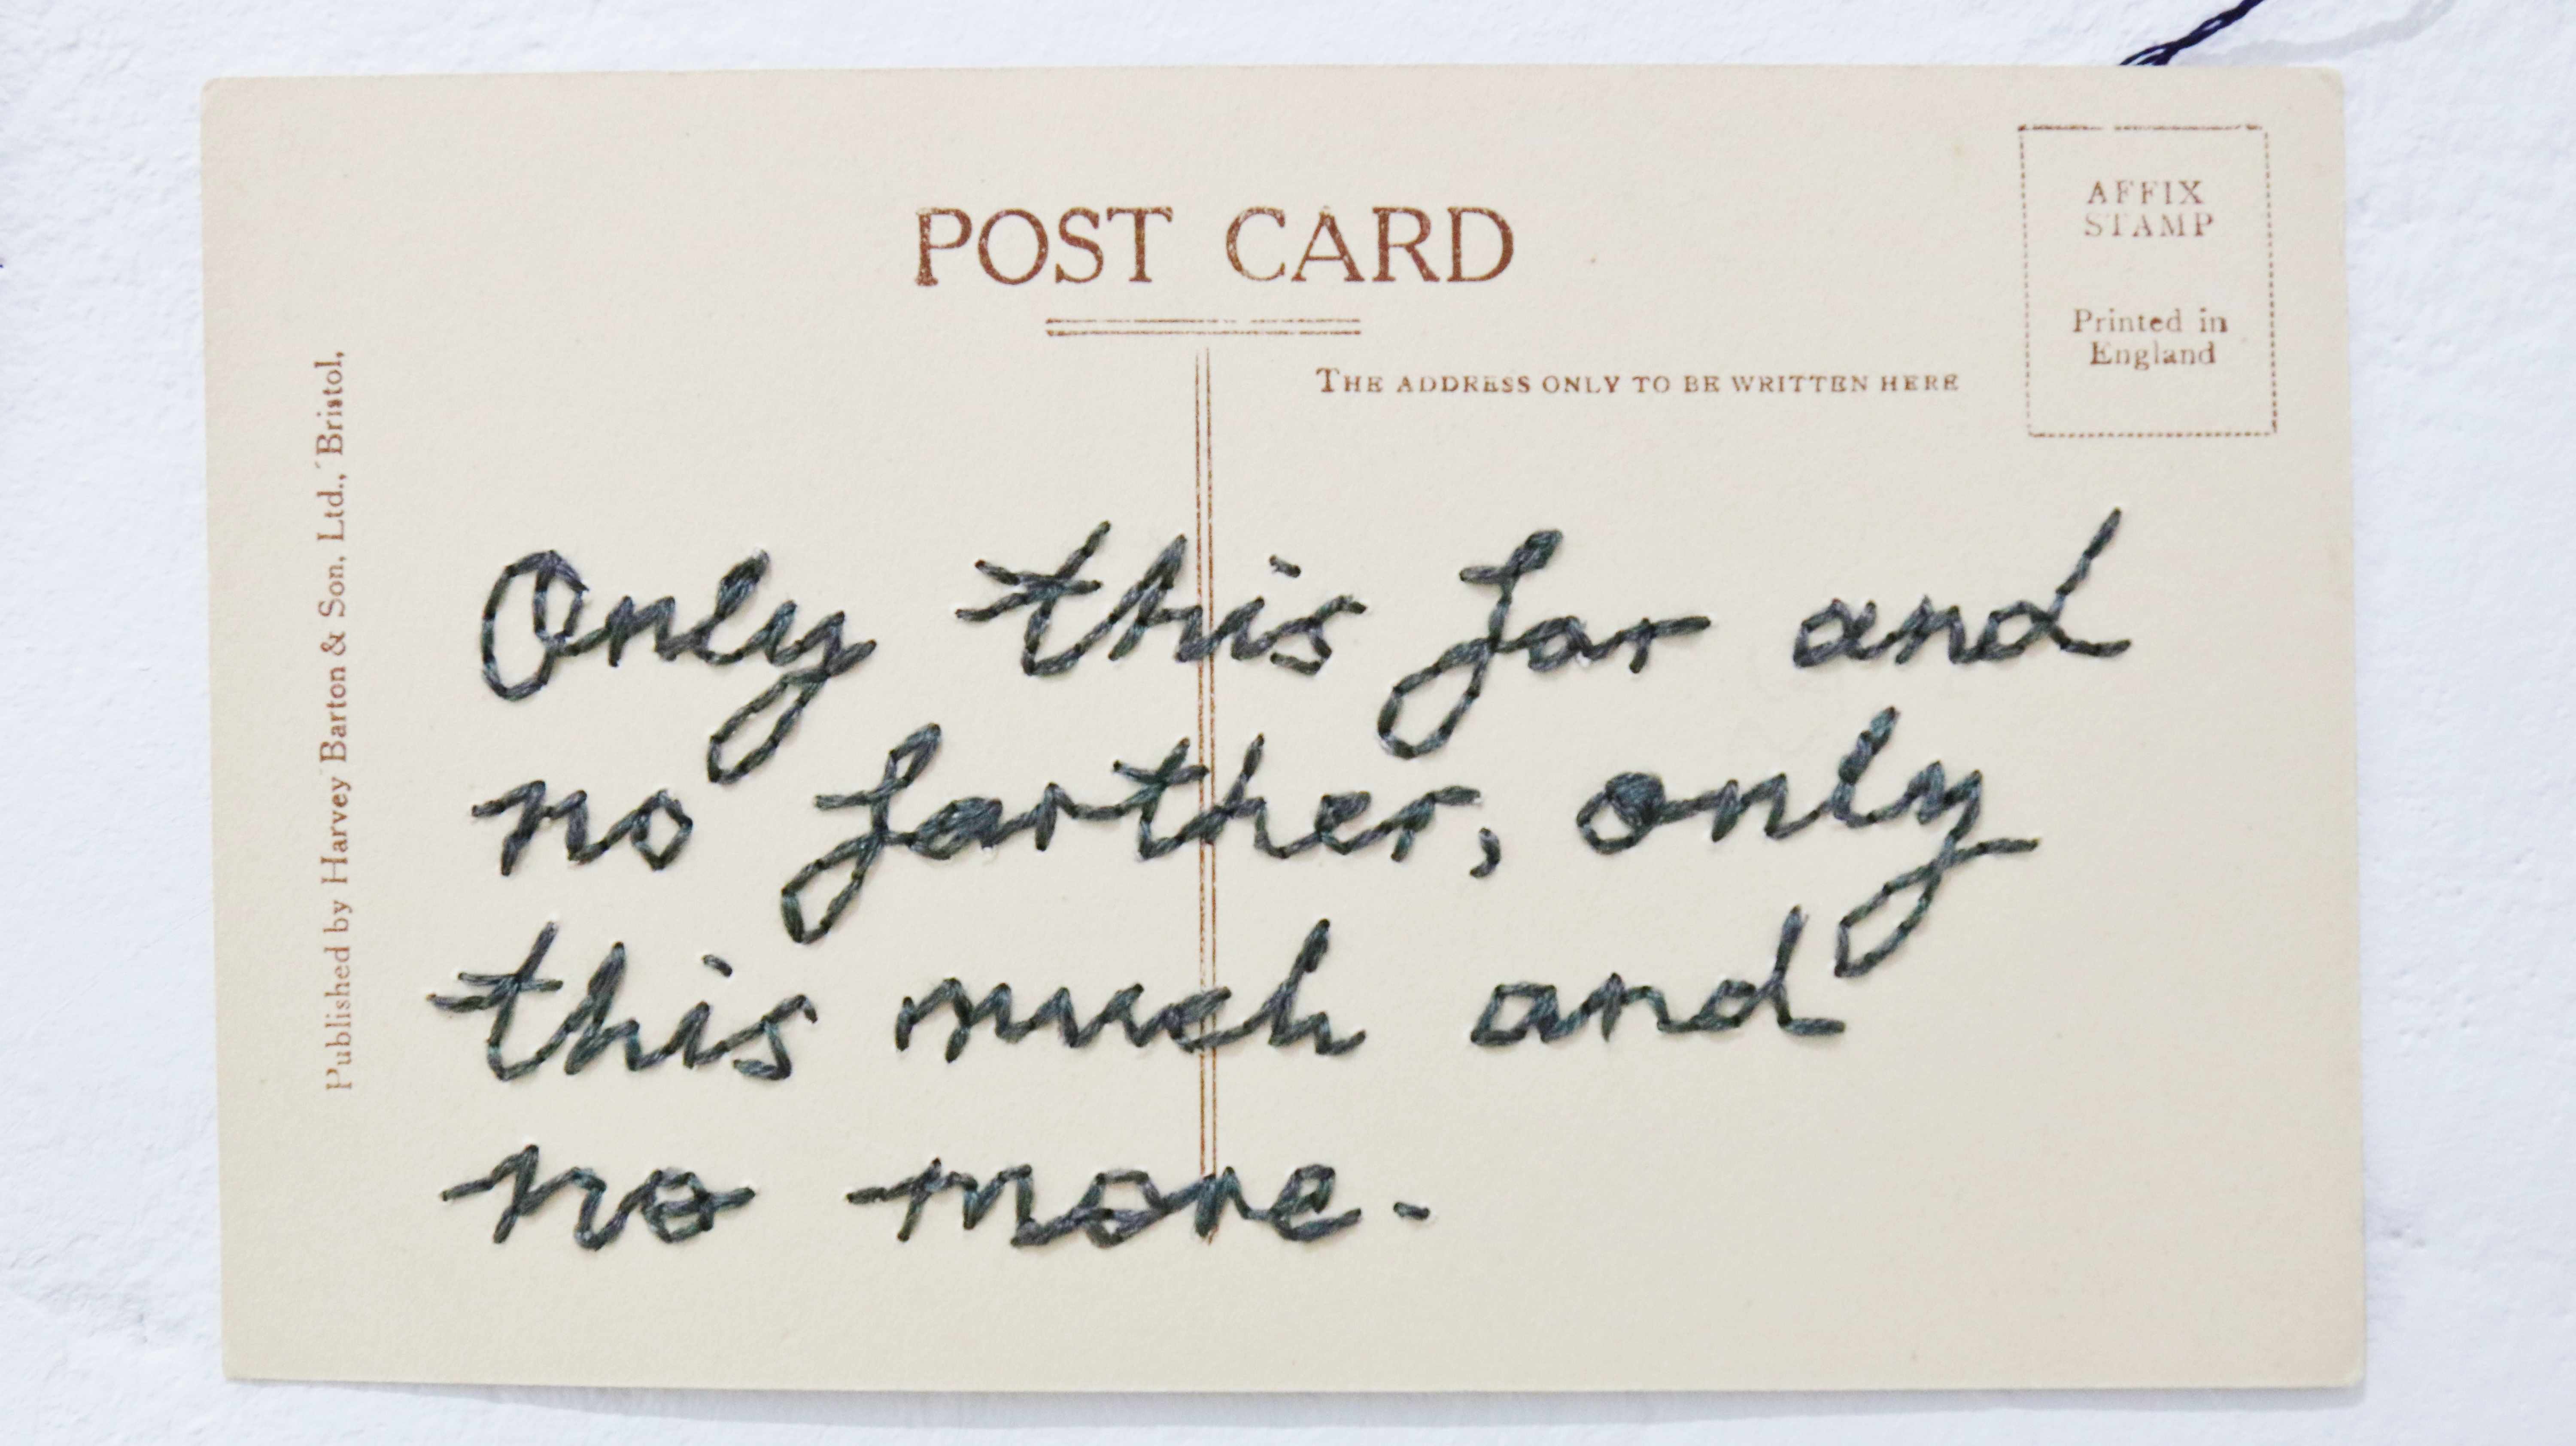 POST CARD
AFFIX
STAMP
Printed in
England
THE ADDRESS ONLY TO BE WRITTEN HERE
Published by Harvey Barton & Son, Ltd., Bristol,
Only this far and
no farther, only
this much and
no more.